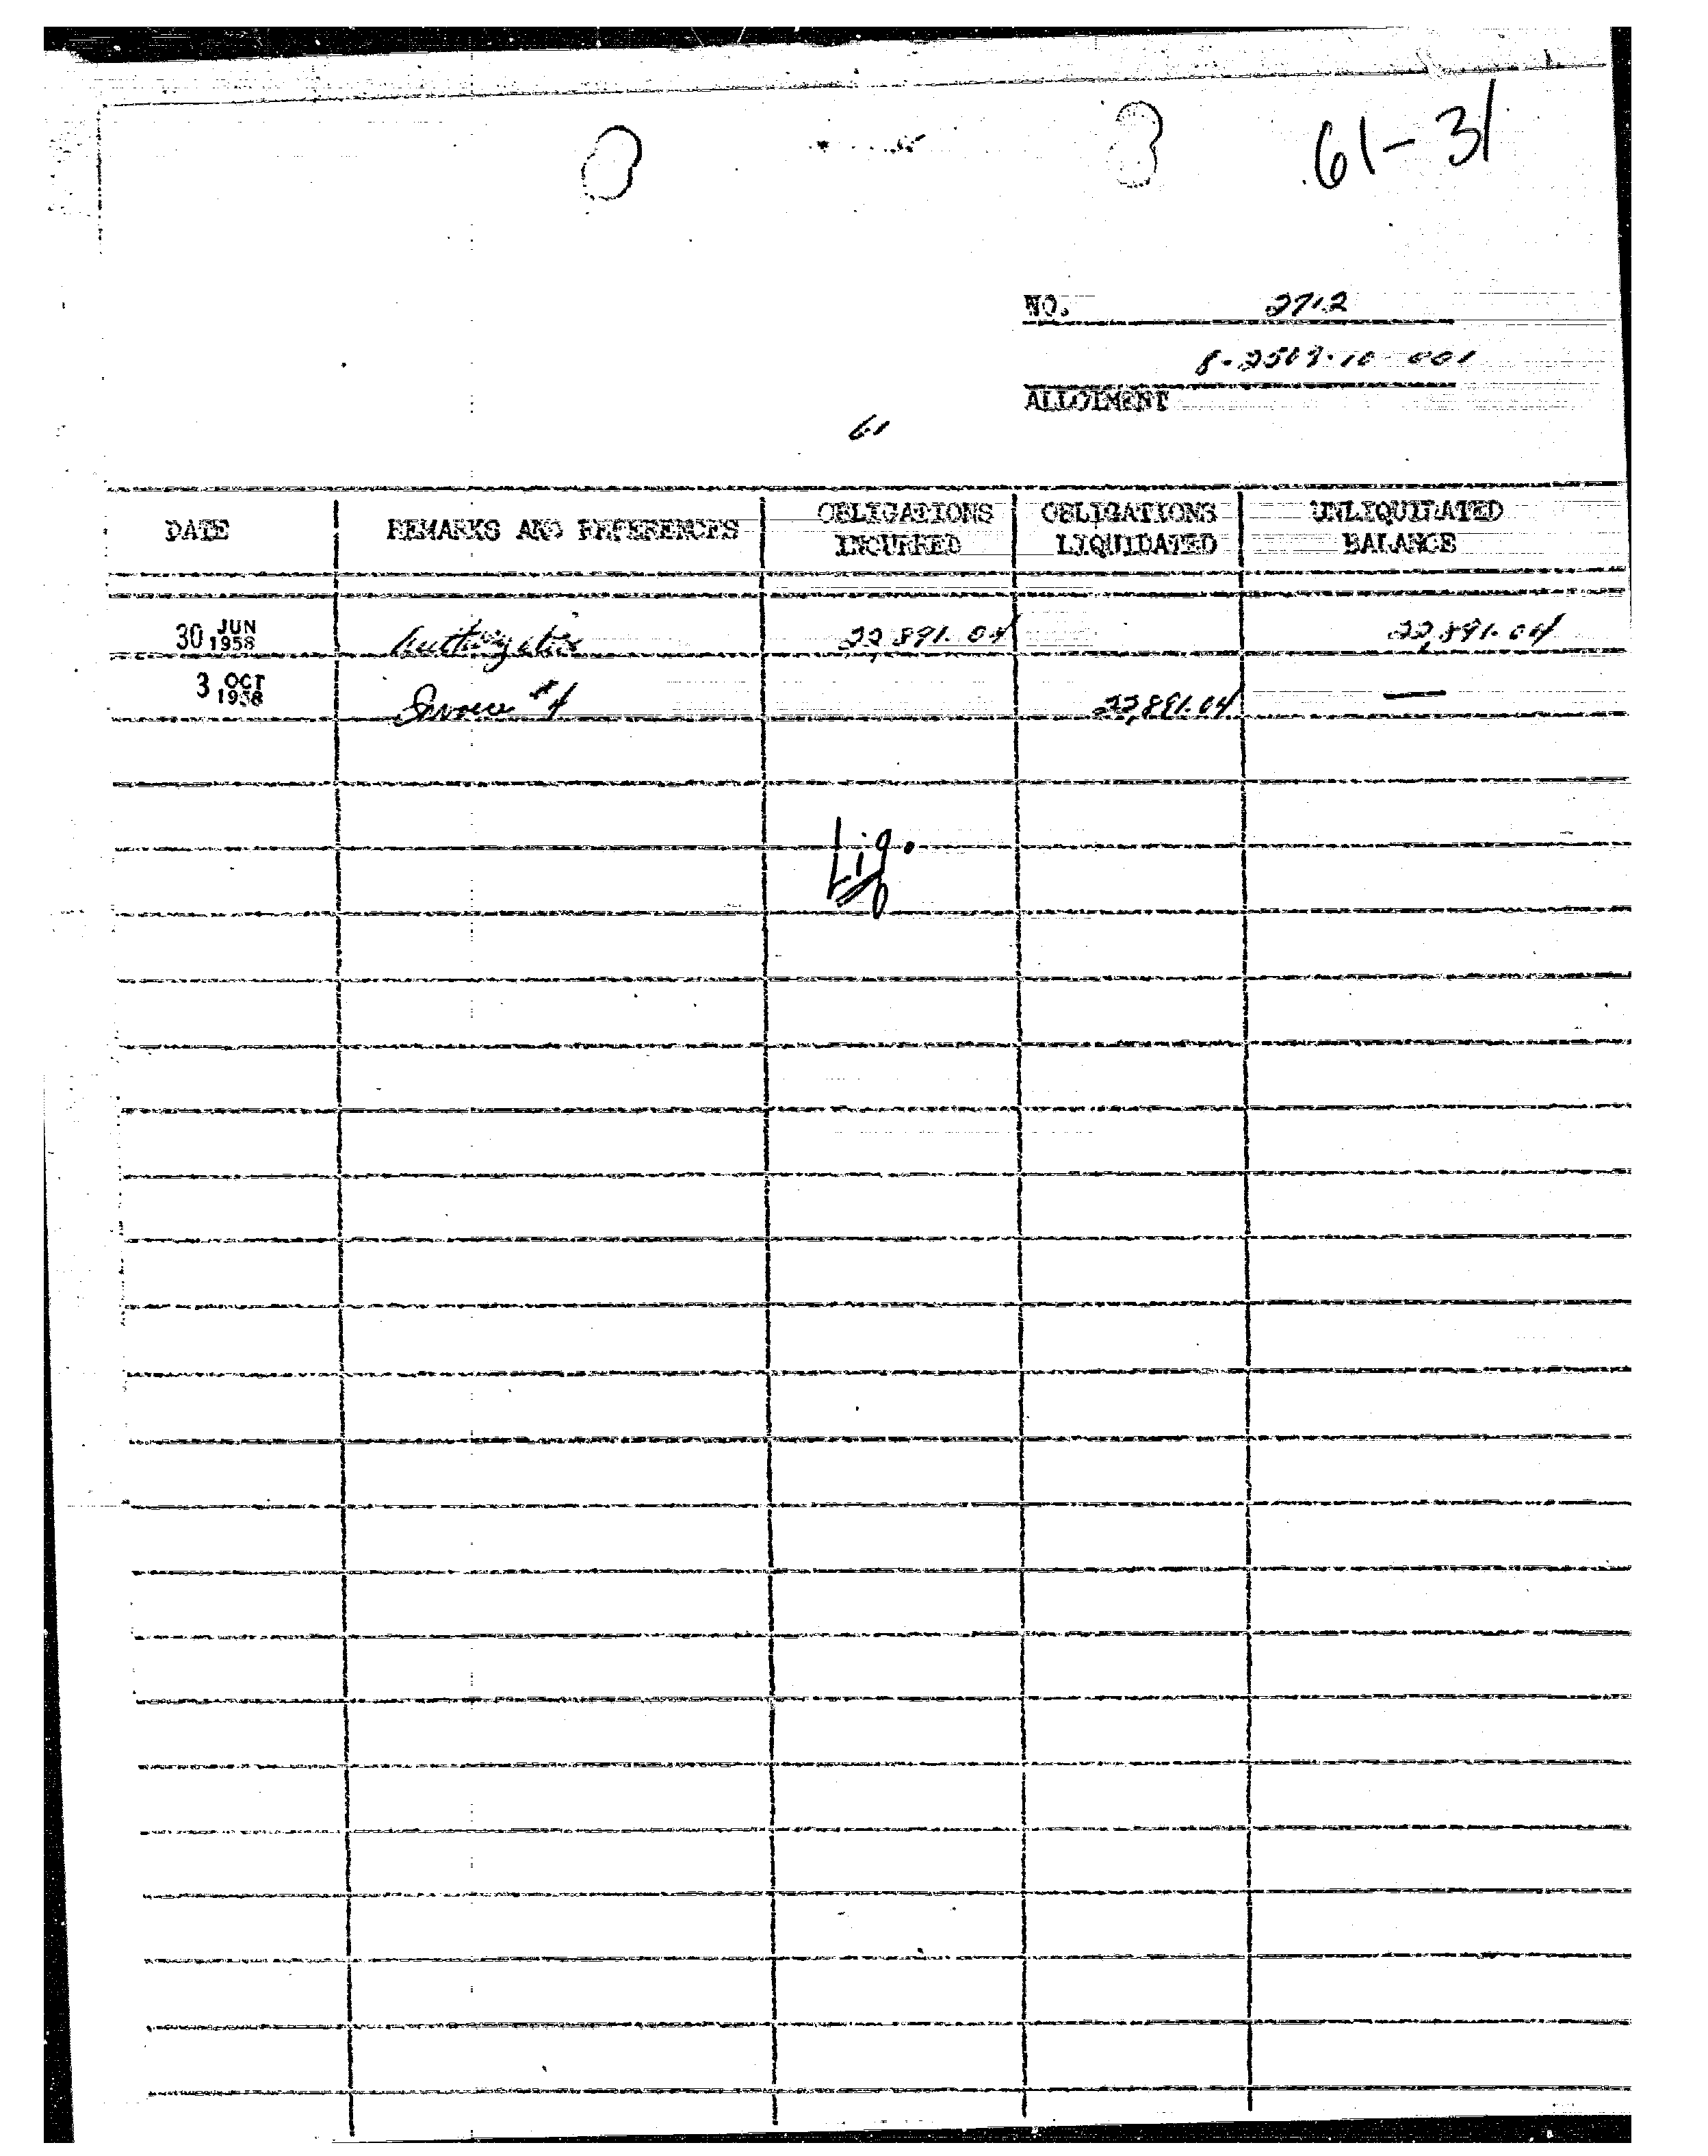 61-31
NO. 2712
8-2509-10-001
ALLOTMENT
61
DATE REMARKS AND REFERENCES OBLIGATIONS INCURRED OBLIGATIONS LIQUIDATED UNLIQUIDATED BALANCE
30 JUN 1958 Authorization 22,891.04 22,891.04
3 OCT 1958 Invoice #4 22,891.04 —
Liq.